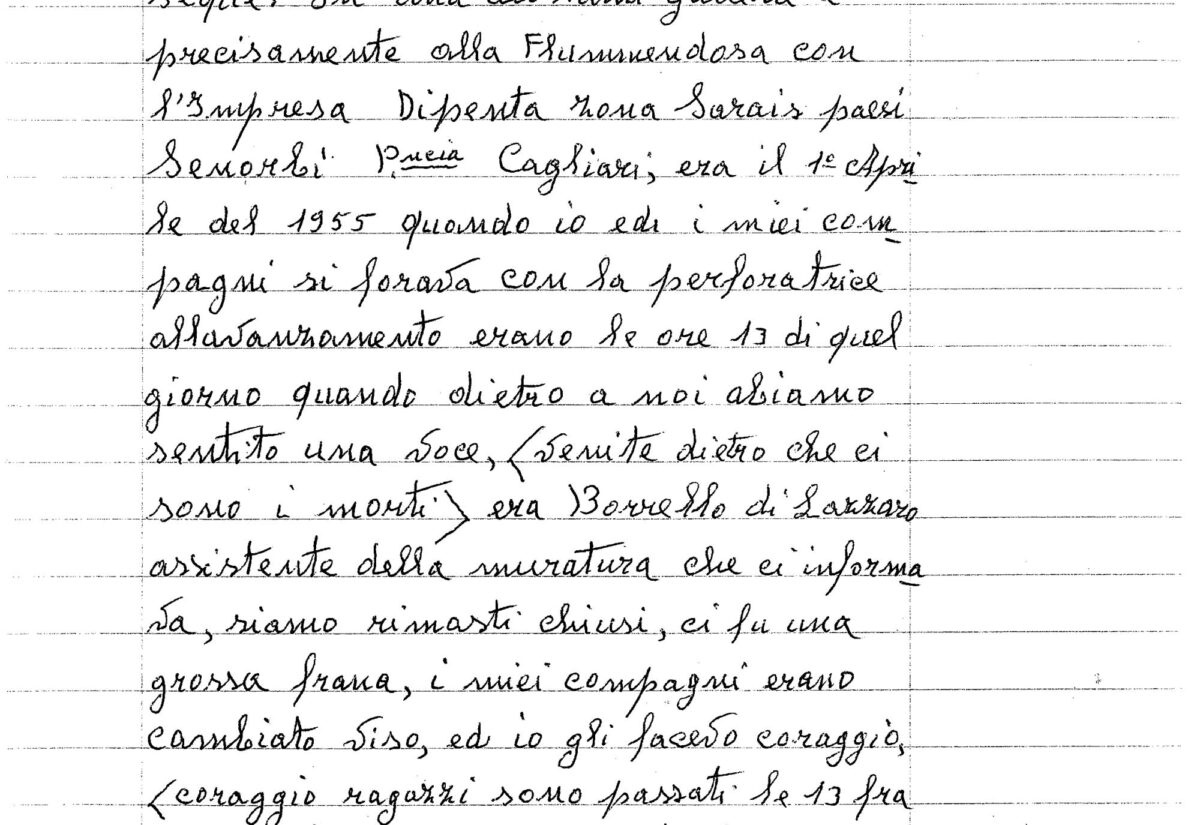 precisamente alla Flummendosa con
l'Impresa Dipenta zona Sarais paesi
Senorbi P.ncia Cagliari, era il 1º Apri
le del 1955 quando io edi i miei com
pagni si forava con la perforatrice
allavanzamento erano le ore 13 di quel
giorno quando dietro a noi abiamo
sentito una voce, (venite dietro che ci
sono i morti) era Borrello di Lazzaro
assistente della muratura che ci informa
va, siamo rimasti chiusi, ci fu una
grossa frana, i miei compagni erano
cambiato viso, ed io gli facevo coraggio,
(coraggio ragazzi sono passati le 13 fra